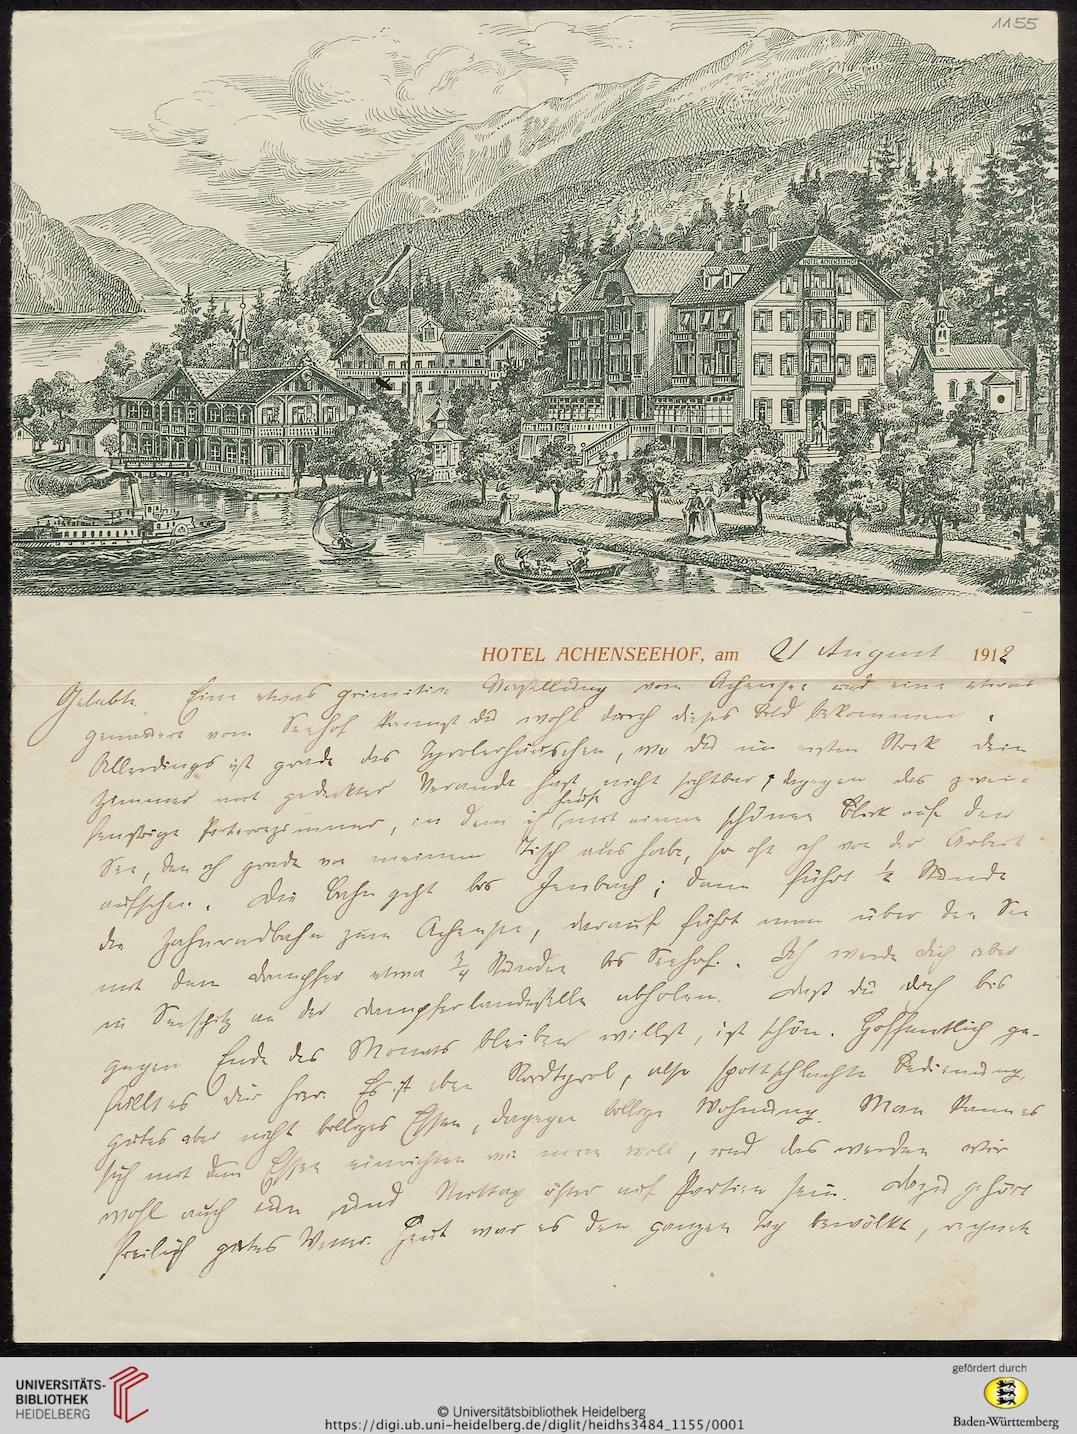 1155
HOTEL ACHENSEEHOF
HOTEL ACHENSEEHOF, am 21 August 1912
Geliebte. Eine etwas primitive Vorstellung vom Achensee und eine etwas
genauere vom Seehof kannst du wohl durch dieses Bild bekommen.
Allerdings ist grade das Tyrolerhäuschen, wo du im ersten Stock dein
Zimmer mit gedeckter Veranda hast nicht sichtbar, dagegen das zwei-
fenstrige Parterrezimmer, in dem ich hause mit einem schönen Blick auf den
See, den ich grade von meinem Tisch aus habe, so oft ich von der Arbeit
aufsehe. Die Bahn geht bis Jenbach; dann führt ½ Stunde
die Zahnradbahn zum Achensee, darauf fährt man über den See
mit dem Dampfer etwa ¾ Stunden bis Seehof. Ich werde dich aber
in Seespitz an der Dampferlandestelle abholen. Daß du doch bis
gegen Ende des Monats bleiben willst, ist schön. Hoffentlich ge-
fällt es dir hier. Es ist eben Nordtyrol, also spottschlechte Bedienung,
gutes aber nicht billiges Essen, dagegen billige Wohnung. Man kann es
sich mit dem Essen einrichten wie man will, und das werden wir
wohl auch tun und Mittag öfter auf Partien sein. Dazu gehört
freilich gutes Wetter. Heut war es den ganzen Tag bewölkt, regnete
UNIVERSITÄTS-
BIBLIOTHEK
HEIDELBERG
© Universitätsbibliothek Heidelberg
https://digi.ub.uni-heidelberg.de/diglit/heidhs3484_1155/0001
gefördert durch
Baden-Württemberg